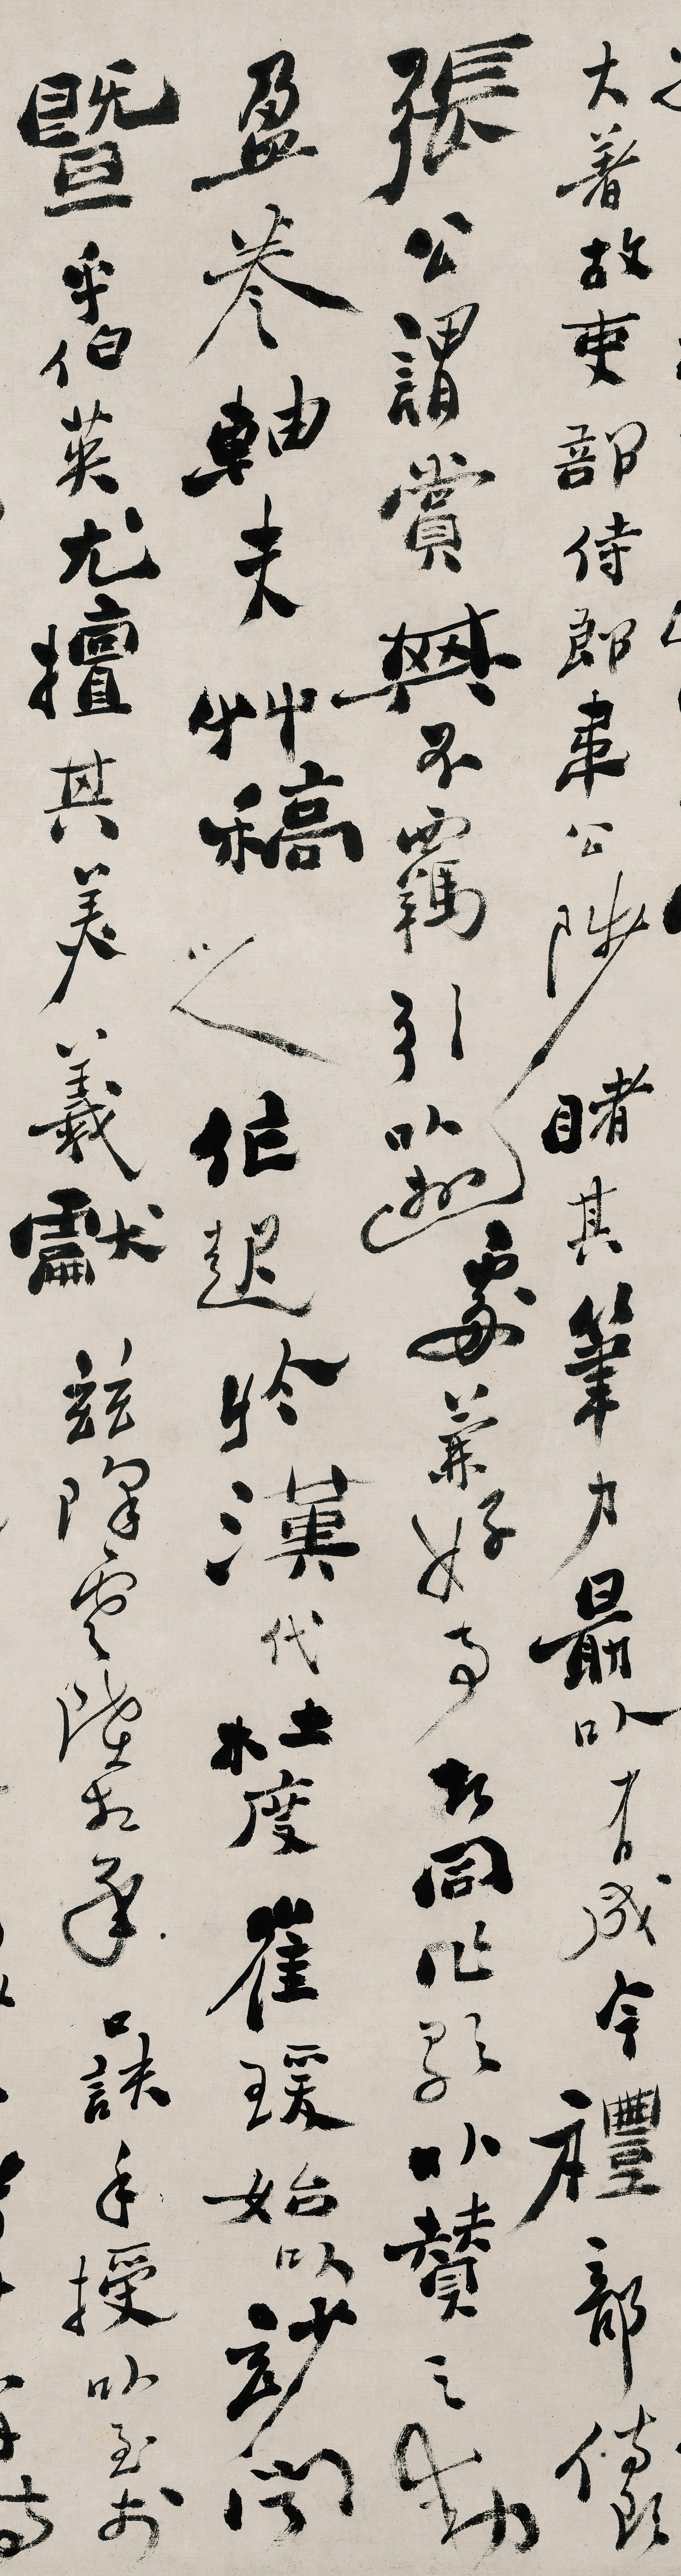 大著故吏部侍郎韋公陟睹其筆力勗以有成今禮部侍郎
張公謂賞其不羈引以遊處兼好事者同作歌以贊之動
盈卷軸夫艸稿之作起於漢代杜度崔瑗始以妙聞
暨乎伯英尤擅其美羲獻茲降虞陸相承口訣手授以至於